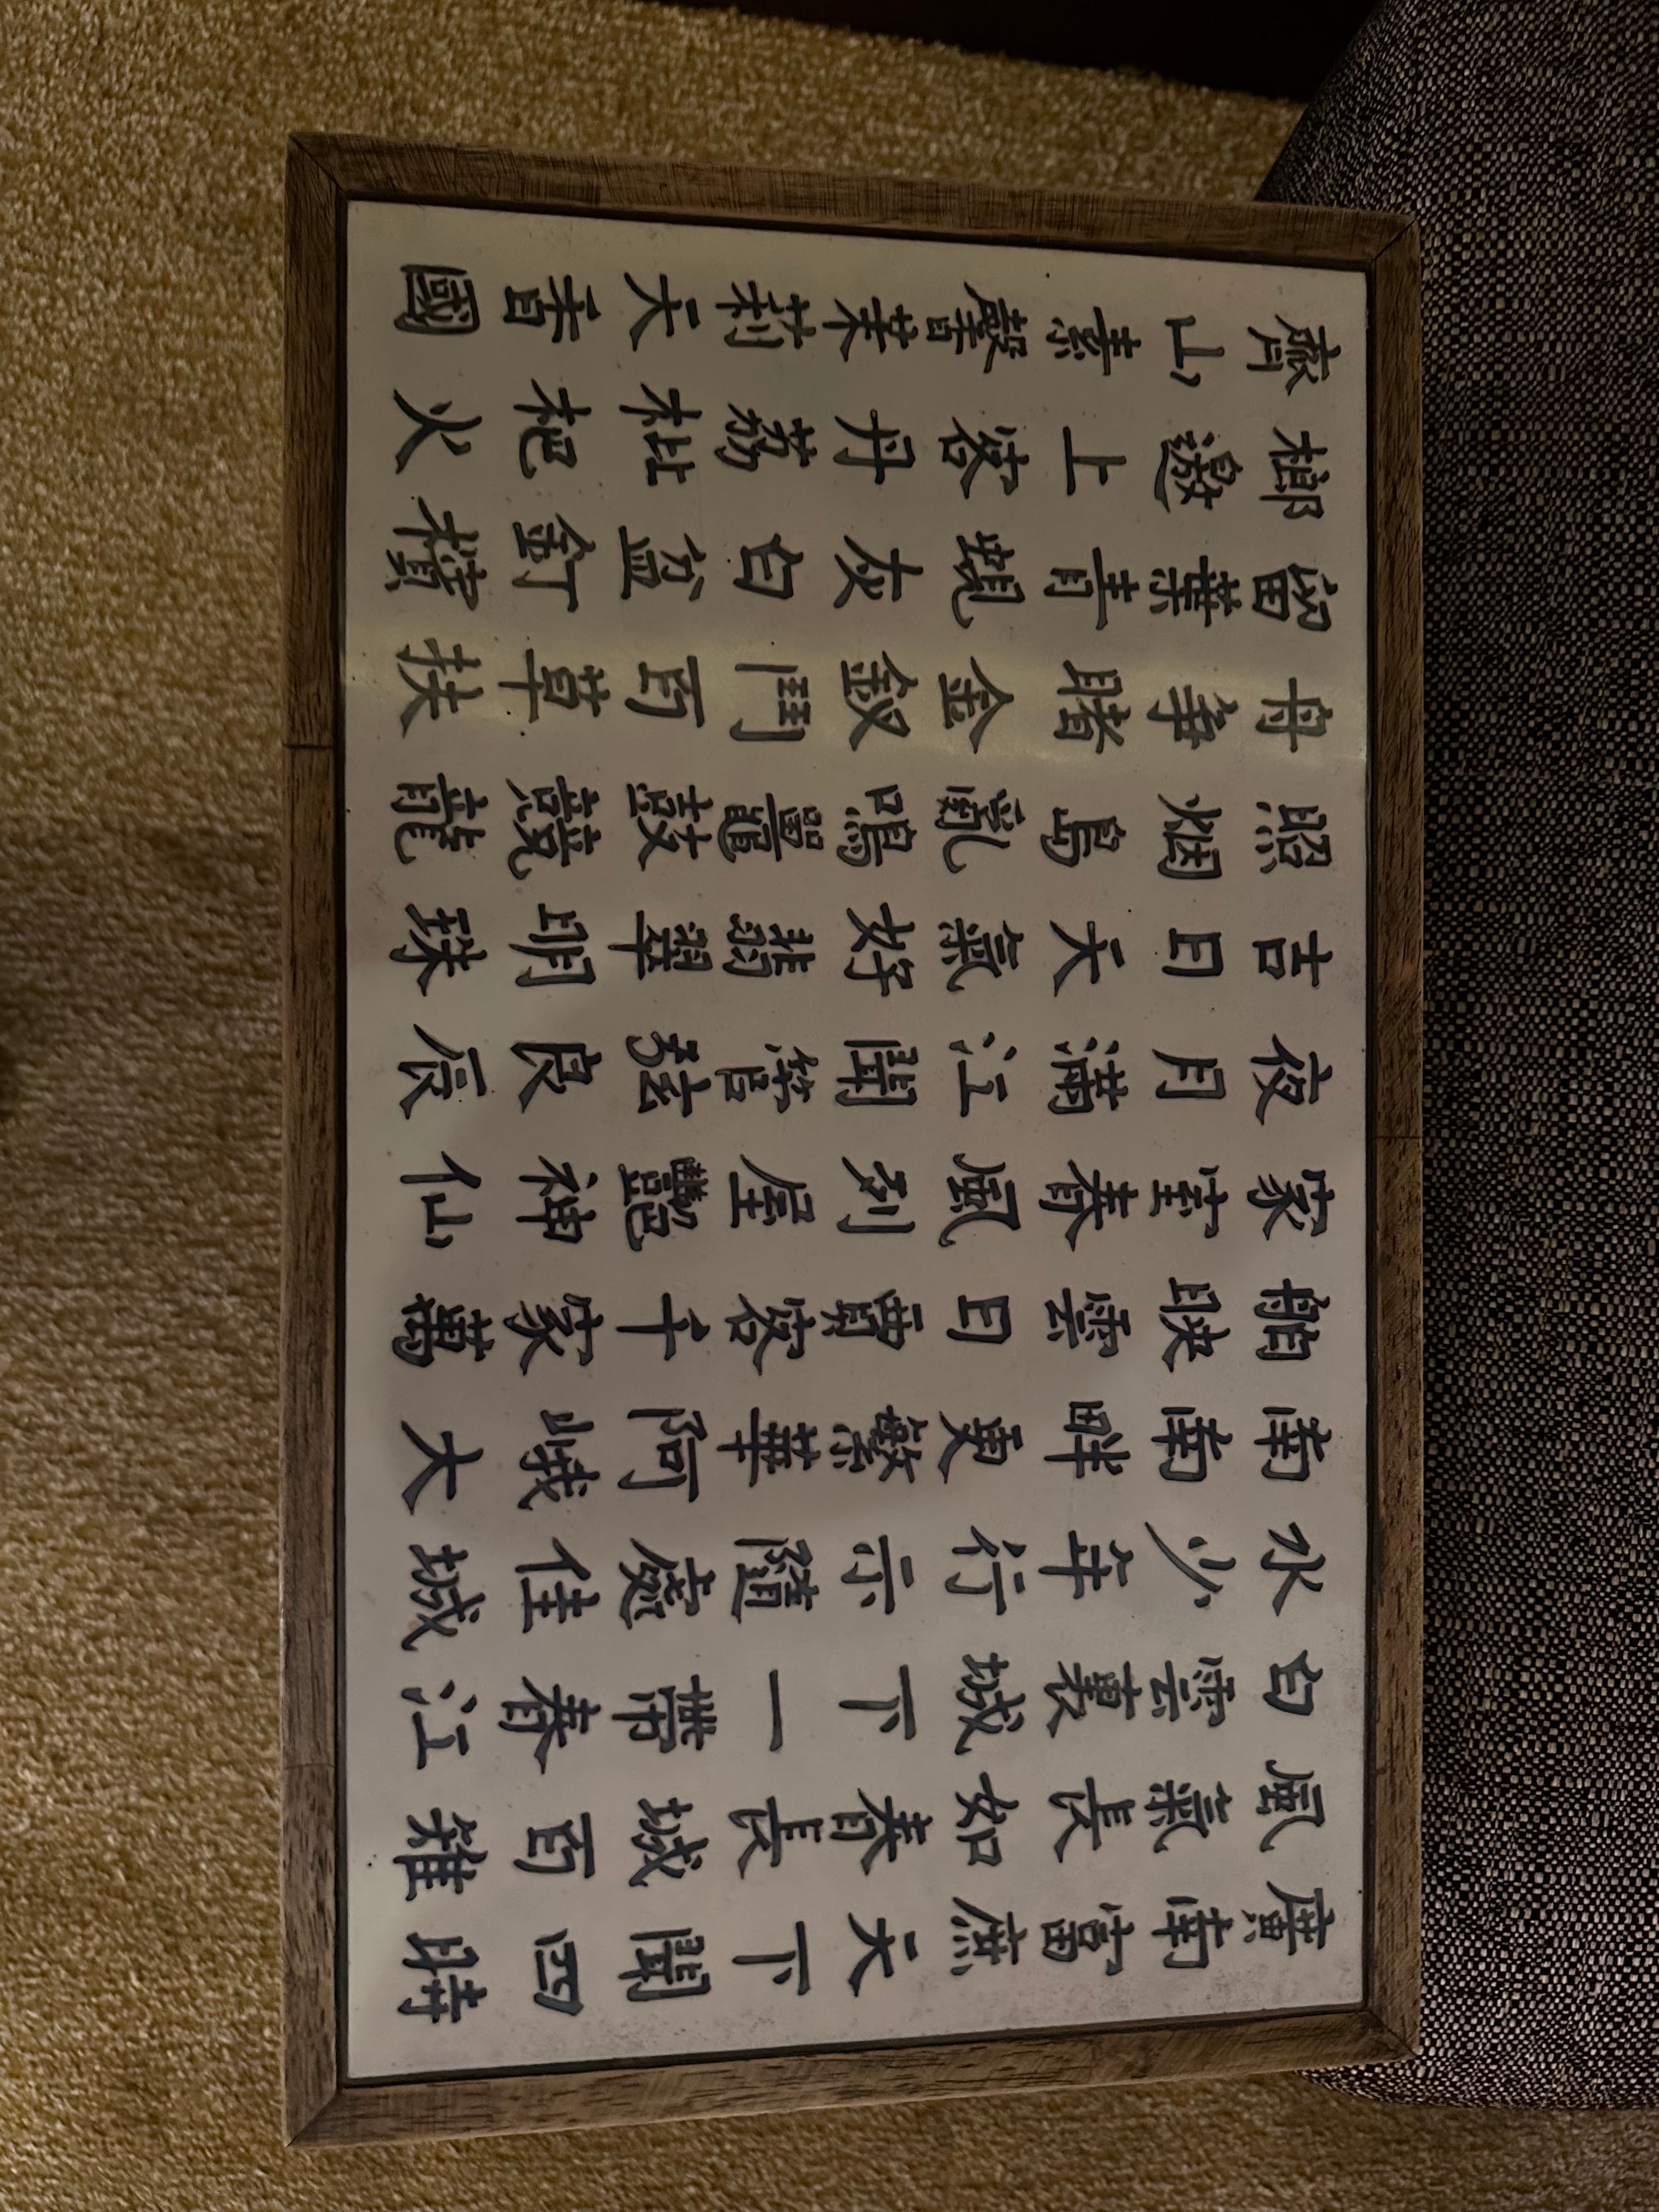 廣南富庶天下聞四時
風氣長如春長城百雉
白雲裏城下一帶春江
水少年行示隨處佳城
南南畔更繁華阿峨大
舶映雲日賈客千家萬
家室春風列屋艷神仙
夜月滿江聞管弦良辰
吉日天氣好翡翠明珠
照烟島亂鳴鼉鼓競龍
舟爭睹金釵鬥百草扶
留葉青蜆灰白盆釘檳
榔邀上客丹荔枇杷火
齊山素馨茉莉天香國